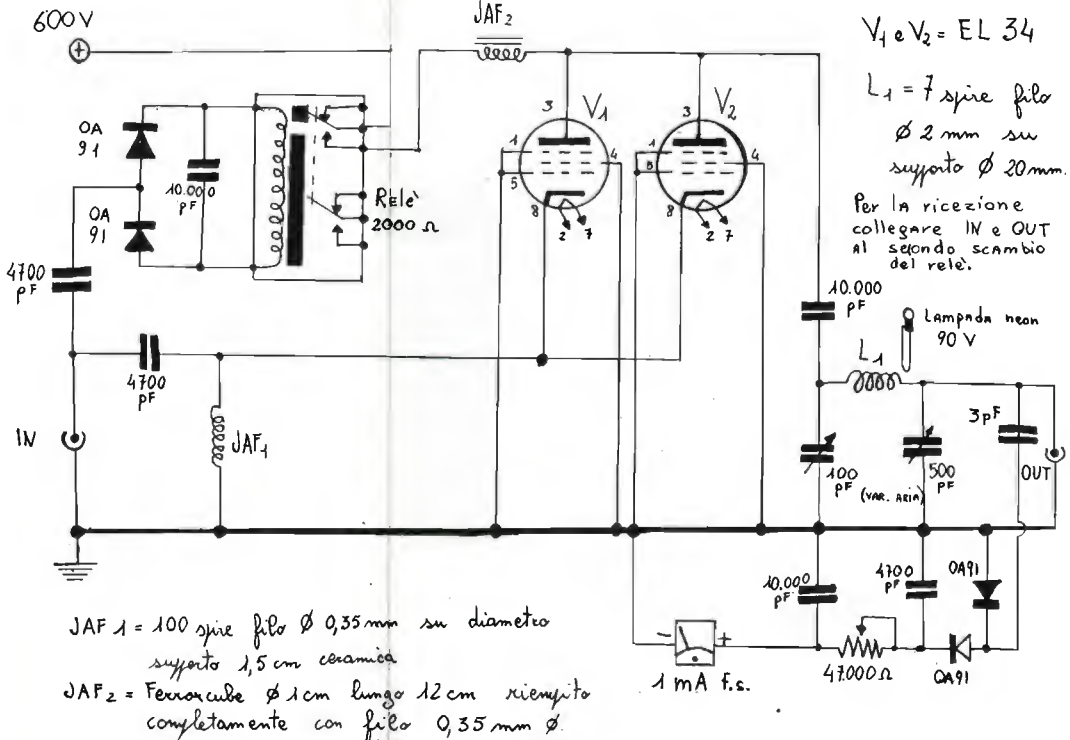 600V
+
JAF2
V1 e V2 = EL 34
L1 = 7 spire filo
Ø 2 mm su
supporto Ø 20mm.
Per la ricezione
collegare IN e OUT
al secondo scambio
del relè.
OA
91
OA
91
10.000
pF
Relè
2000 Ω
3
V1
1
5
4
8
2
7
3
V2
1
6
4
8
2
7
4700
pF
4700
pF
IN
JAF1
10.000
pF
Lampada neon
90 V
L1
100
pF
(VAR. ARIA)
500
pF
3pF
OUT
10.000
pF
4700
pF
OA91
-
+
1 mA f.s.
47000Ω
OA91
JAF 1 = 100 spire filo Ø 0,35 mm su diametro
supporto 1,5 cm ceramica
JAF2 = Ferroxcube Ø 1cm lungo 12 cm riempito
completamente con filo 0,35 mm Ø.